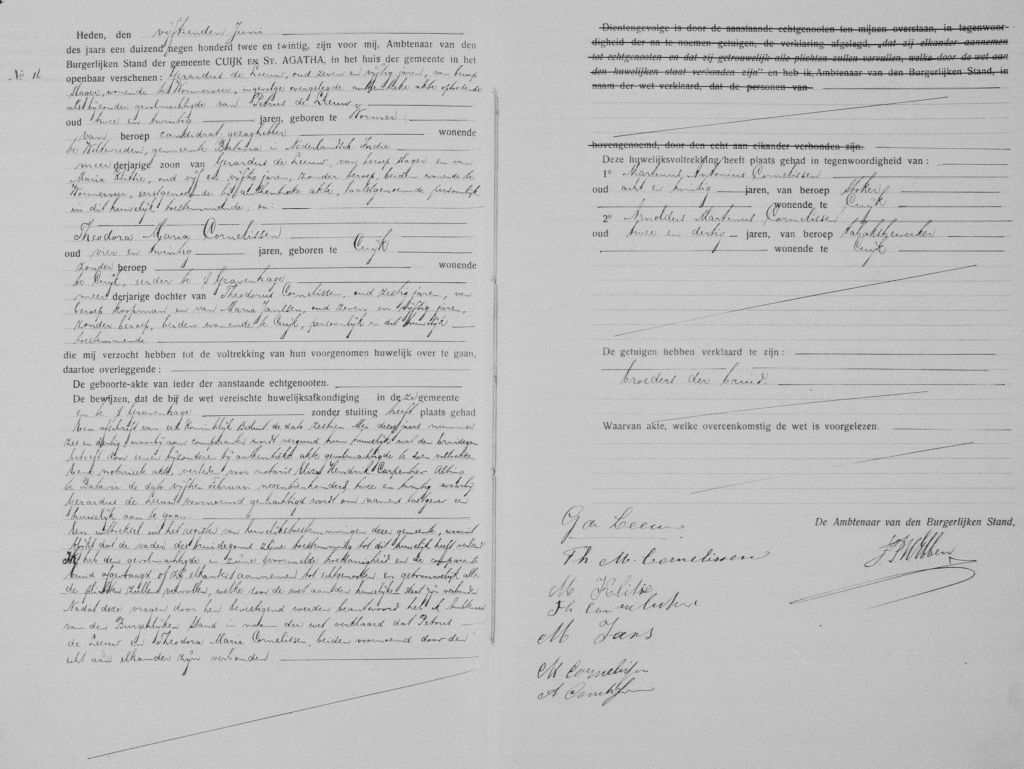 Heden, den vijftienden Juni
des jaars een duizend negen honderd twee en twintig, zijn voor mij, Ambtenaar van den
Burgerlijken Stand der gemeente CUIJK EN ST. AGATHA, in het huis der gemeente in het
No 16
openbaar verschenen: Gerardus de Leeuw, oud zeven en vijftig jaren, van beroep
slager, wonende te Wormerveer, ingevolge overgelegde authentieke akte optredende
als bijzonder gevolmachtigde van Petrus de Leeuw,
oud twee en twintig jaren, geboren te Wormer
van beroep candidaat gezaghebber wonende
te Weltevreden, gemeente Batavia in Nederlandsch Indië
meerderjarige zoon van Gerardus de Leeuw, van beroep slager en van
Maria Klitsie, oud vijf en vijftig jaren, zonder beroep, beiden wonende te
Wormerveer, eerstgenoemde bij authentieke akte, laatstgenoemde persoonlijk
in dit huwelijk toestemmende, en:
Theodora Maria Cornelissen
oud vier en twintig jaren, geboren te Cuijk
zonder beroep wonende
te Cuijk, eerder te 's Gravenhage
meerderjarige dochter van Theodorus Cornelissen, oud zestig jaren, van
beroep koopman en van Maria Janssen, oud zeven en vijftig jaren,
zonder beroep, beiden wonende te Cuijk, persoonlijk in dit huwelijk
toestemmende
die mij verzocht hebben tot de voltrekking van hun voorgenomen huwelijk over te gaan,
daartoe overleggende:
De geboorte-akte van ieder der aanstaande echtgenooten.
De bewijzen, dat de bij de wet vereischte huwelijksafkondiging in deze gemeente
en te 's Gravenhage zonder stuiting heeft plaats gehad
Een afschrift van een Koninklijk Besluit de dato zestien Mei dezes jaars nummer
zes en dertig, waarbij aan comparanten wordt vergund hun huwelijk wat den bruidegom
betreft door eenen bijzonderen bij authentieke akte gevolmachtigde te doen voltrekken
Eene notarieele akte, verleden voor notaris Hendrik Carpentier Alting
te Batavia de dato vijftien Februari negentienhonderd twee en twintig waarbij
Gerardus de Leeuw voornoemd gemachtigd wordt om namens lastgever een
huwelijk aan te gaan.
Een uittreksel uit het register van huwelijkstoestemmingen dezer gemeente, waaruit
blijkt dat de vader des bruidegoms zijne toestemming tot dit huwelijk heeft verleend
Ik heb den gevolmachtigde in zijne voormelde hoedanigheid en de comparante
bruid afgevraagd of zij elkander aannemen tot echtgenooten en getrouwelijk alle
de plichten zullen vervullen, welke door de wet aan den huwelijken staat zijn verbonden
Nadat deze vragen door hen bevestigend werden beantwoord heb ik Ambtenaar
van den Burgerlijken Stand in naam der wet verklaard dat Petrus
de Leeuw en Theodora Maria Cornelissen, beiden voornoemd door den
echt aan elkander zijn verbonden
Dientengevolge is door de aanstaande echtgenooten ten mijnen overstaan, in tegenwoor-
digheid der na te noemen getuigen, de verklaring afgelegd, „dat zij elkander aannemen
tot echtgenooten en dat zij getrouwelijk alle plichten zullen vervullen, welke door de wet aan
den huwelijken staat verbonden zijn" en heb ik, Ambtenaar van den Burgerlijken Stand, in
naam der wet verklaard, dat de personen van
bovengenoemd, door den echt aan elkander verbonden zijn.
Deze huwelijksvoltrekking heeft plaats gehad in tegenwoordigheid van :
1o Martinus Antonius Cornelissen
oud acht en twintig jaren, van beroep stoker
wonende te Cuijk
2o Arnoldus Martinus Cornelissen
oud twee en dertig jaren, van beroep tabaksbewerker
wonende te Cuijk
De getuigen hebben verklaard te zijn :
broeders der bruid.
Waarvan akte, welke overeenkomstig de wet is voorgelezen.
De Ambtenaar van den Burgerlijken Stand,
G de Leeuw
Th. M. Cornelissen
M Klitsie
Th Cornelissen
M Jans
M Cornelissen
A Cornelissen